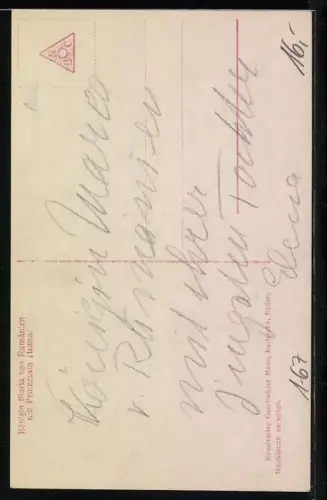 Königin Maria von Rumänien
mit Prinzessin Ileana.
Königin Maria
v. Rumänien
mit ihrer
jüngsten Tochter
Ilena
Kunstverlag Gebrüder Moos, Karlsruhe, Baden.
Nachdruck verboten.
16,-
1-67